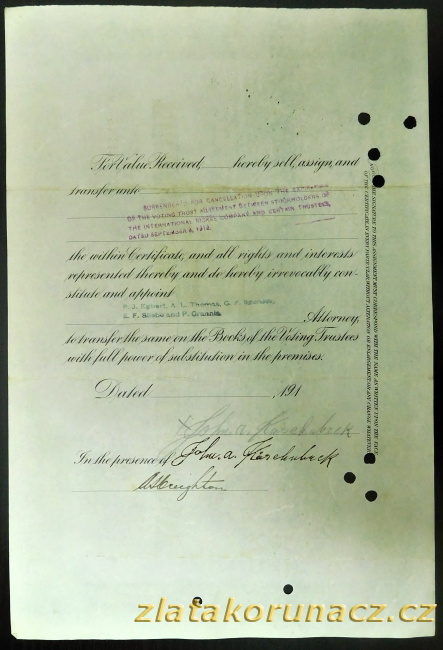 For Value Received, hereby sell, assign, and
transfer unto
SURRENDERED FOR CANCELLATION UPON THE EXPIRATION
OF THE VOTING TRUST AGREEMENT BETWEEN STOCKHOLDERS OF
THE INTERNATIONAL NICKEL COMPANY AND CERTAIN TRUSTEES,
DATED SEPTEMBER 9, 1912.
the within Certificate, and all rights and interests
represented thereby and do hereby irrevocably con-
stitute and appoint
Egbert, A. L. Thomas, G. F.
E. F. and P.
Attorney,
to transfer the same on the Books of the Voting Trustees
with full power of substitution in the premises.
Dated ,191
John A.
In the presence of John A.
NOTICE: THE SIGNATURE TO THIS ASSIGNMENT MUST CORRESPOND WITH THE NAME AS WRITTEN UPON THE FACE
OF THE CERTIFICATE, IN EVERY PARTICULAR, WITHOUT ALTERATION OR ENLARGEMENT, OR ANY CHANGE WHATEVER.
zlatakorunacz.cz